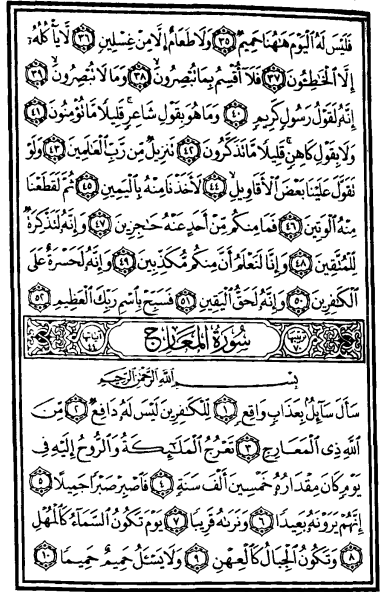 فَلَيْسَ لَهُ الْيَوْمَ هَٰهُنَا حَمِيمٌ ﴿٣٥﴾ وَلَا طَعَامٌ إِلَّا مِنْ غِسْلِينٍ ﴿٣٦﴾ لَّا يَأْكُلُهُۥٓ
إِلَّا الْخَٰطِـُٔونَ ﴿٣٧﴾ فَلَآ أُقْسِمُ بِمَا تُبْصِرُونَ ﴿٣٨﴾ وَمَا لَا تُبْصِرُونَ ﴿٣٩﴾
إِنَّهُۥ لَقَوْلُ رَسُولٍ كَرِيمٍ ﴿٤٠﴾ وَمَا هُوَ بِقَوْلِ شَاعِرٍ ۚ قَلِيلًا مَّا تُؤْمِنُونَ ﴿٤١﴾
وَلَا بِقَوْلِ كَاهِنٍ ۚ قَلِيلًا مَّا تَذَكَّرُونَ ﴿٤٢﴾ تَنزِيلٌ مِّن رَّبِّ الْعَٰلَمِينَ ﴿٤٣﴾ وَلَوْ
تَقَوَّلَ عَلَيْنَا بَعْضَ الْأَقَاوِيلِ ﴿٤٤﴾ لَأَخَذْنَا مِنْهُ بِالْيَمِينِ ﴿٤٥﴾ ثُمَّ لَقَطَعْنَا
مِنْهُ الْوَتِينَ ﴿٤٦﴾ فَمَا مِنكُم مِّنْ أَحَدٍ عَنْهُ حَٰجِزِينَ ﴿٤٧﴾ وَإِنَّهُۥ لَتَذْكِرَةٌ
لِّلْمُتَّقِينَ ﴿٤٨﴾ وَإِنَّا لَنَعْلَمُ أَنَّ مِنكُم مُّكَذِّبِينَ ﴿٤٩﴾ وَإِنَّهُۥ لَحَسْرَةٌ عَلَى
الْكَٰفِرِينَ ﴿٥٠﴾ وَإِنَّهُۥ لَحَقُّ الْيَقِينِ ﴿٥١﴾ فَسَبِّحْ بِاسْمِ رَبِّكَ الْعَظِيمِ ﴿٥٢﴾
ترتيبها ٧٠ سُورَةُ الْمَعَارِجِ آياتها ٤٤
بِسْمِ اللَّهِ الرَّحْمَٰنِ الرَّحِيمِ
سَأَلَ سَآئِلٌۢ بِعَذَابٍ وَاقِعٍ ﴿١﴾ لِّلْكَٰفِرِينَ لَيْسَ لَهُۥ دَافِعٌ ﴿٢﴾ مِّنَ
اللَّهِ ذِي الْمَعَارِجِ ﴿٣﴾ تَعْرُجُ الْمَلَٰٓئِكَةُ وَالرُّوحُ إِلَيْهِ فِي
يَوْمٍ كَانَ مِقْدَارُهُۥ خَمْسِينَ أَلْفَ سَنَةٍ ﴿٤﴾ فَاصْبِرْ صَبْرًا جَمِيلًا ﴿٥﴾
إِنَّهُمْ يَرَوْنَهُۥ بَعِيدًا ﴿٦﴾ وَنَرَىٰهُ قَرِيبًا ﴿٧﴾ يَوْمَ تَكُونُ السَّمَآءُ كَالْمُهْلِ
﴿٨﴾ وَتَكُونُ الْجِبَالُ كَالْعِهْنِ ﴿٩﴾ وَلَا يَسْـَٔلُ حَمِيمٌ حَمِيمًا ﴿١٠﴾